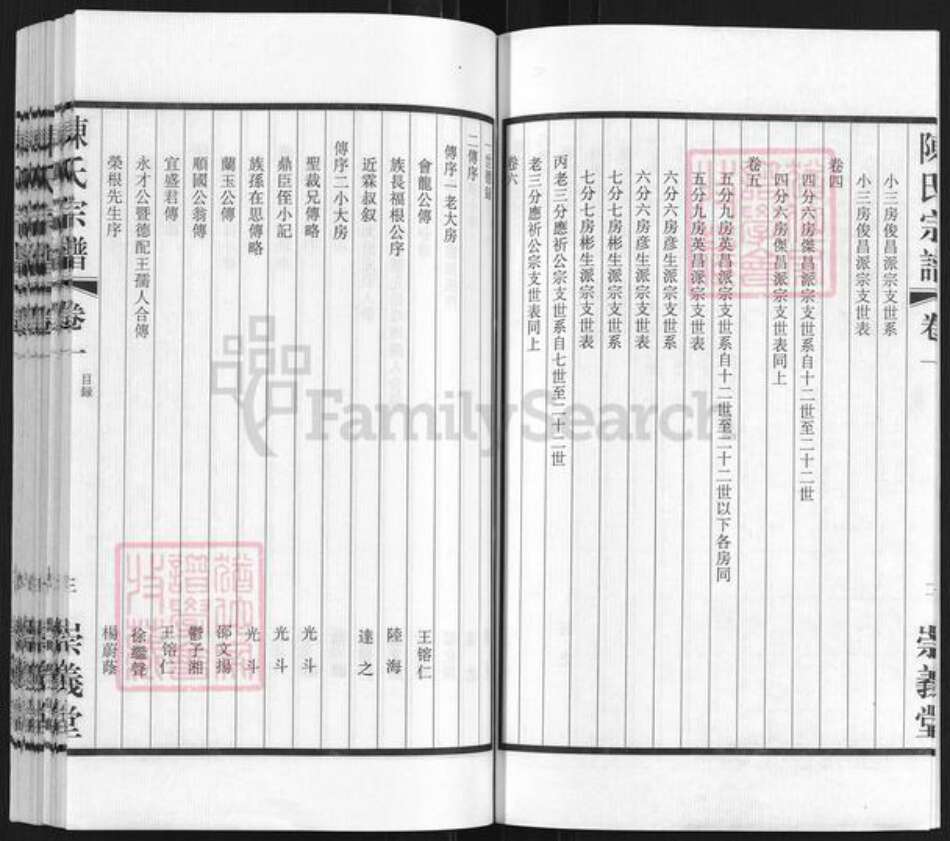 陳氏宗譜 卷一
崇義堂
小三房俊昌派宗支世系
小三房俊昌派宗支世表
卷四
四分六房傑昌派宗支世系自十二世至二十二世
四分六房傑昌派宗支世表同上
卷五
五分九房英昌派宗支世系自十二世至二十二世以下各房同
五分九房英昌派宗支世表
六分六房彦生派宗支世系
六分六房彦生派宗支世表
七分七房彬生派宗支世系
七分七房彬生派宗支世表
丙老三分應祈公宗支世系自七世至二十二世
老三分應祈公宗支世表同上
卷六
二傳序
傳序一老大房
會龍公傳 王镕仁
族長福根公序 陸海
近霖叔叙 達之
傳序二小大房
聖裁兄傳略 光斗
鼎臣侄小記 光斗
族孫在思傳略 光斗
蘭玉公傳 邵文揚
順國公翁傳 鬱子湘
宜盛君傳 王镕仁
永才公暨德配王孺人合傳 徐繼聲
榮根先生序 楊蔚蔭
陳氏宗譜 卷一 目録 三 崇義堂
FamilySearch